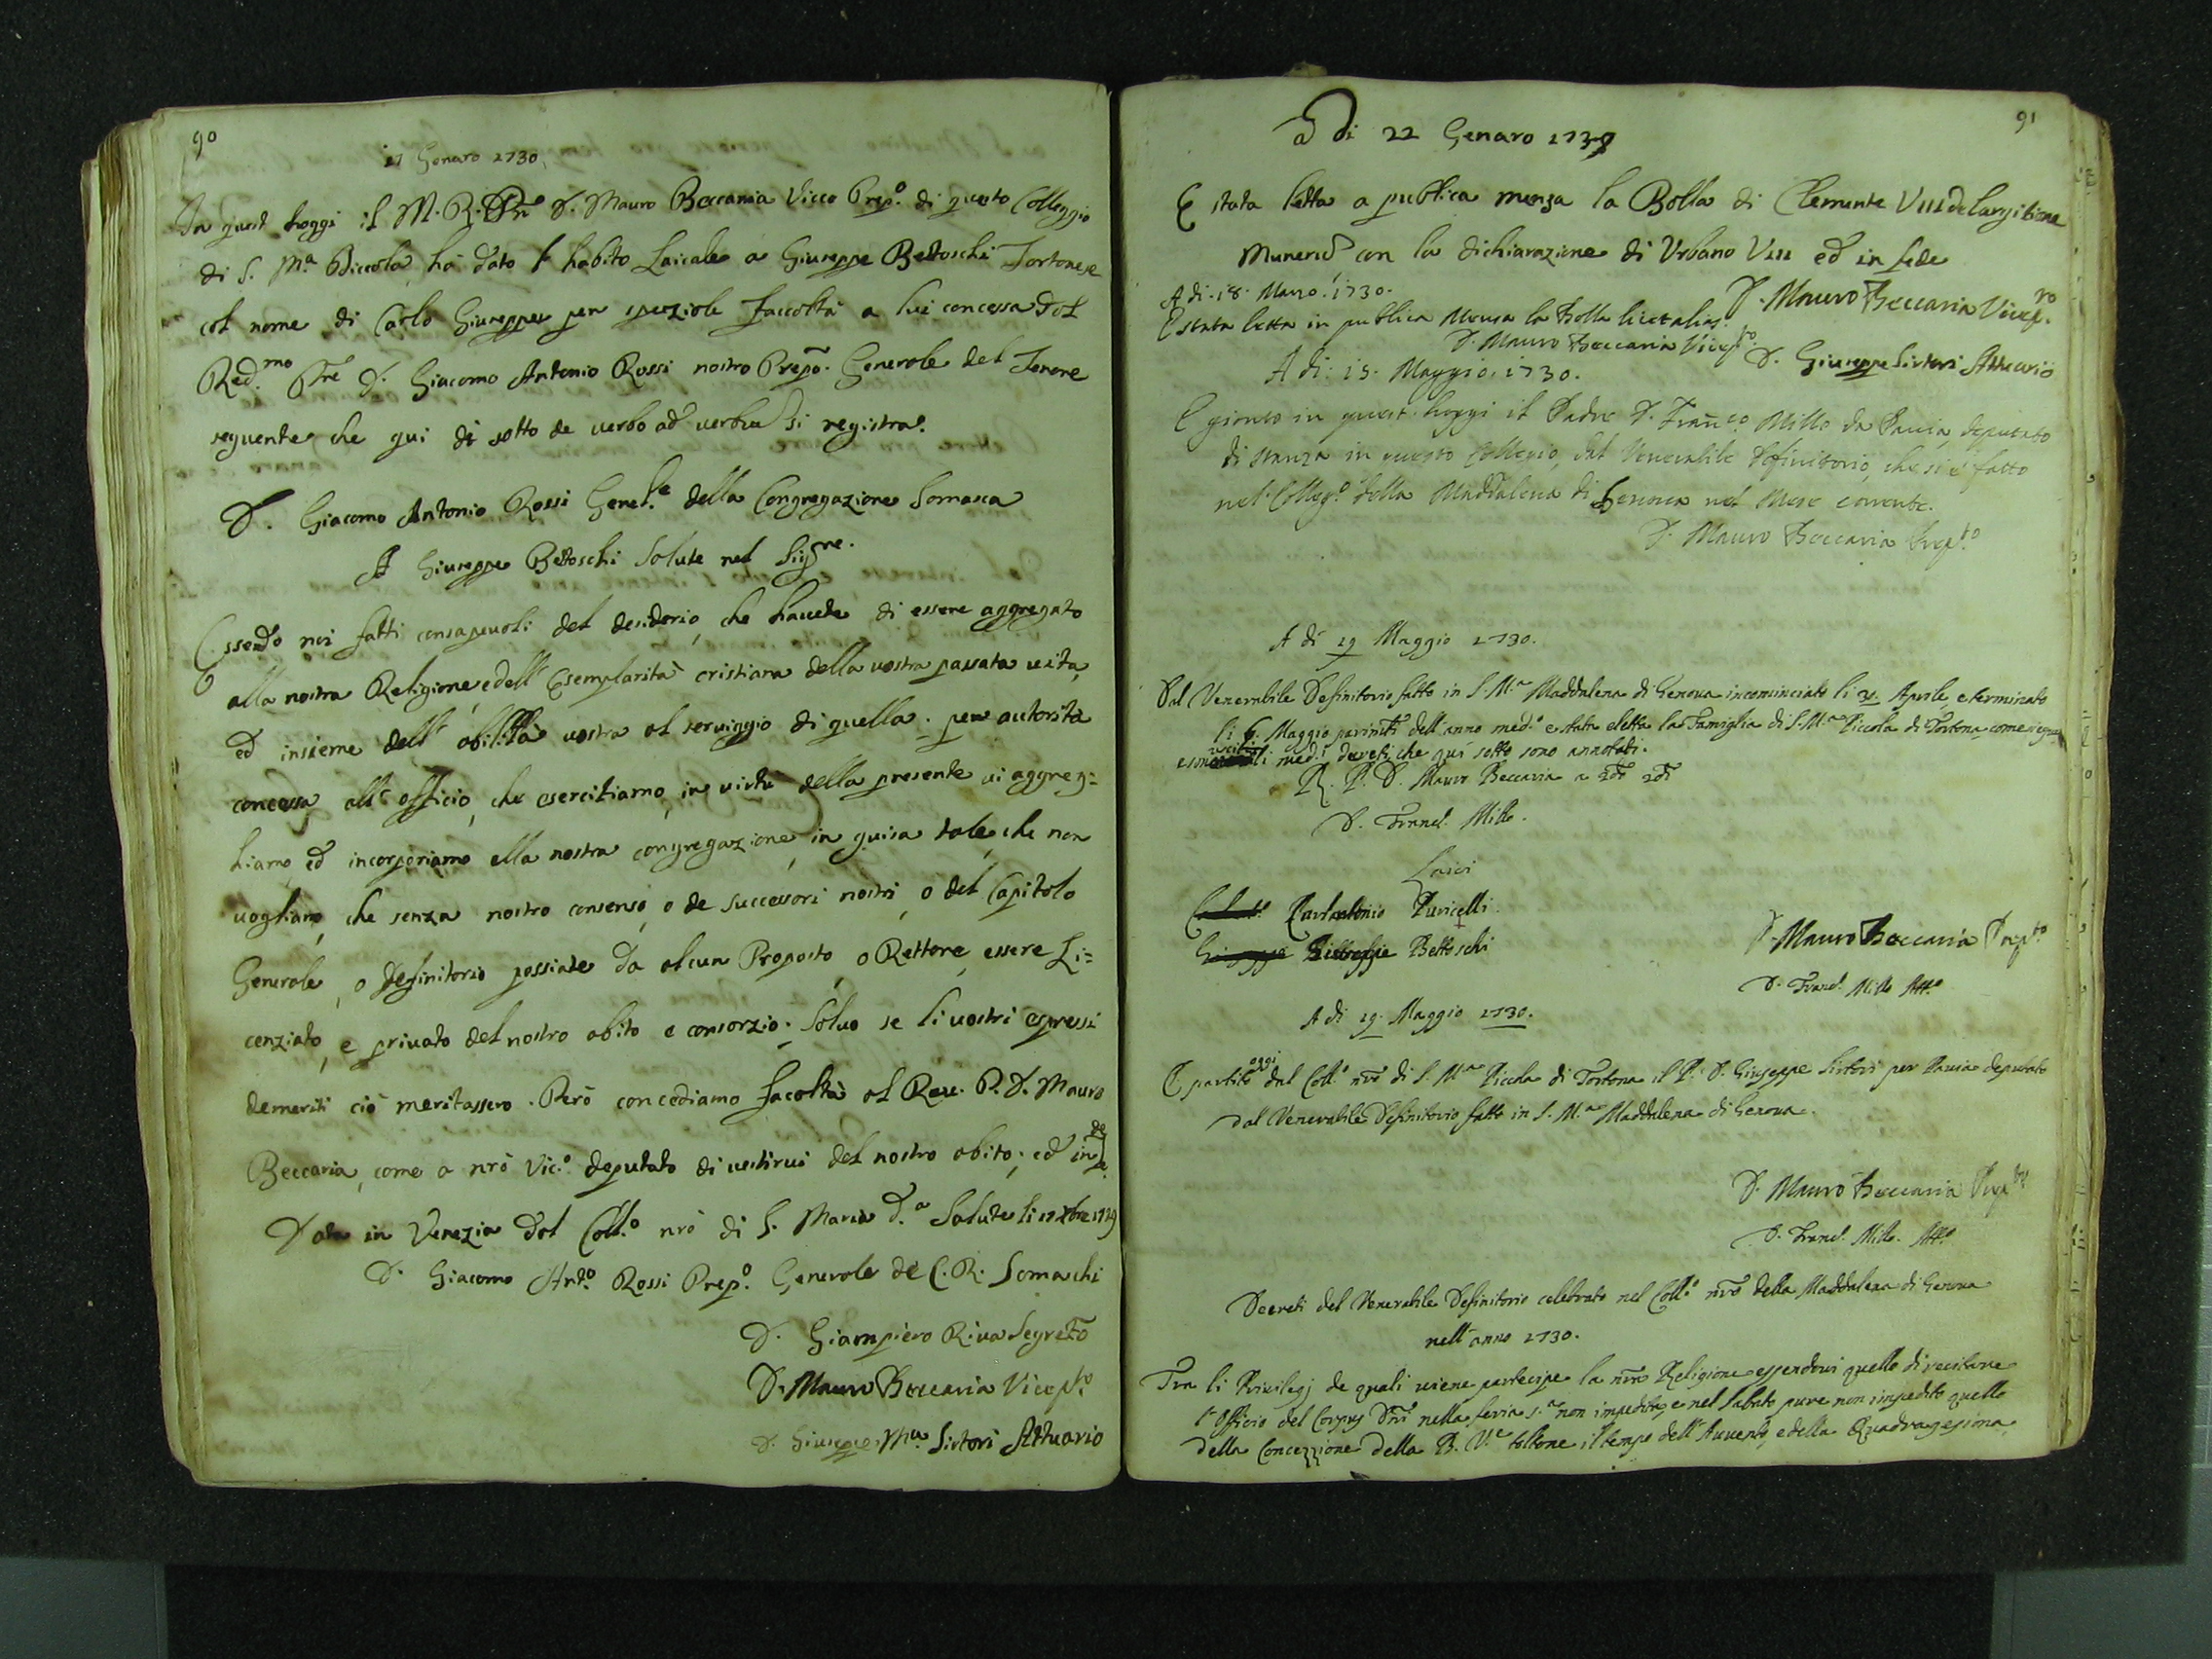 90
17 Genaro 1730
In quest hoggi il M. R. Pre D. Mauro Beccaria Vicco Prep.o di questo Colleggio
di S. Ma. Piccola há dato l' habito Laicale a Giuseppe Bettoschi Tortonese
col nome di Carlo Giuseppe per speziale faccoltà a lui concessa dal
Red.mo Pre D. Giacomo Antonio Rossi nostro Prepo. Generale del Tenore
seguente che qui di sotto de verbo ad verbu si registra.
D. Giacomo Antonio Rossi Genel.e della Congregazione Somasca
A Giuseppe Bettoschi Salute nel Sigre.
Essendo noi fatti consapevoli del desiderio, che havete di essere aggregato
alla nostra Religione, e dell' Esemplarità cristiana della vostra passata vita,
ed insieme dell' abilittà vostra al servigio di quella; per autorità
concessa all' officio, che esercitiamo, in virtù della presente vi aggreg:
hiamo, ed incorporiamo alla nostra congregazione, in guisa tale, che non
vogliamo, che senza nostro consenso, o de successori nostri, o del Capitolo
Generale, o Definitorio possiate da alcun Proposto, o Rettore, essere Li=
cenziato, e privato del nostro abito e consorzio; Salvo se li vostri espressi
demeriti ciò meritassero. Però concediamo facoltà al Rev. P. D. Mauro
Beccaria, come a nro Vic.o deputato di vestirvi del nostro abito; ed in fe
de.
Data in Venezia dal Coll.o nro di S. Maria d.a Salute li 17 Xbre 1729
D. Giacomo Ant.o Rossi Prep.o Generale de C. R. Somaschi
D. Giampiero Riva Segreto
D. Mauro Beccaria Vicepto
D. Giuseppe Ma. Sirtori Attuario
91
A di 22 Genaro 1730
E stata letta a publica menza la Bolla di Clemente VIII de largitione
Munerud con la dichiarazione di Urbano VIII ed in fede
D. Mauro Beccaria Vicep.ro
A di 18. Marzo. 1730.
E stata letta in publica Mensa la Bolla licet alias.
D. Mauro Beccaria Vicepto
D. Giuseppe Sirtori Attuario
A di. 15. Maggio. 1730.
E gionto in quest. hoggi il Padre D. Franco. Millo da Pavia, deputato
di stanza in questo Collegio, dal Venerabile Definitorio, che si è fatto
nel Colleg.o della Maddalena di Genova nel Mese corrente.
D. Mauro Beccaria Prepto
A di 19 Maggio 1730.
Dal Venerabile Definitorio fatto in S. M.a Maddalena di Genova incominciato li Aprile, e terminato
li 6. Maggio dell' anno med.o e stata eletta la Famiglia di S. M.a Piccola di Tortona come segue
e li med.i decreti, che qui sotto sono annotati.
R. P. D. Mauro Beccaria
D. Franc. Millo.
Laici
Carlantonio Puricelli
Bettoschi
D. Mauro Beccaria Prepto
D. Franc. Millo Att.o
A di 19. Maggio 1730.
E partito oggi dal Coll.o nro di S. M.a Piccola di Tortona il P. D. Giuseppe Sirtori per Pavia deputato
dal Venerabile Definitorio fatto in S. M.a Maddalena di Genova.
D. Mauro Beccaria Prepto
D. Franc. Millo. Att.o
Decreti del Venerabile Definitorio celebrato nel Coll.o nro della Maddalena di Genova
nell' anno 1730.
Tra li Privilegj de quali viene partecipe la nra Religione essendovi quello di recitare
l' Officio del Corpus Dni nella feria 5.a non impedita, e nel Sabato pure non impedito quello
della Concezzione della B. V.e toltone il tempo dell' Avvento, e della Quadragesima